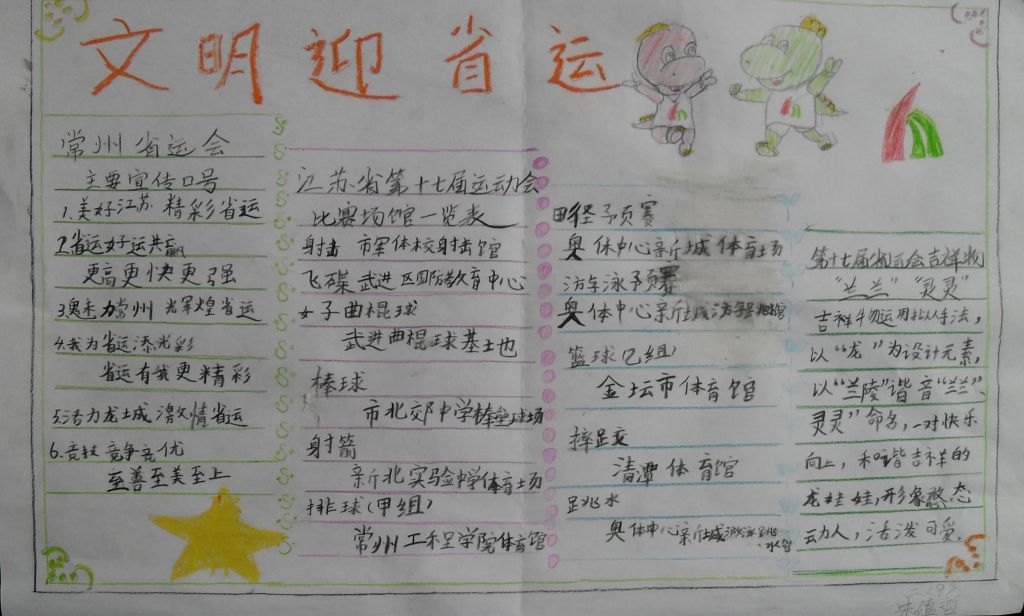 文明迎省运
常州省运会
主要宣传口号
1.美好江苏 精彩省运
2.省运好运共赢
更高更快更强
3.魅力常州 光辉煌省运
4.我为省运添光彩
省运有我更精彩
5.活力龙城 激情省运
6.竞技竞争竞优
至善至美至上
江苏省第十七届运动会
比赛场馆一览表
射击 市军体校射击馆
飞碟 武进区国际教育中心
女子曲棍球
武进曲棍球基地
棒球
市北郊中学棒垒球场
射箭
新北实验中学体育场
排球(甲组)
常州工程学院体育馆
田径予页赛
奥体中心新城体育场
游泳予页赛
奥体中心新城游泳跳水馆
篮球(乙组)
金坛市体育馆
摔跤
清潭体育馆
跳水
奥体中心新城游泳跳水馆
第十七届省运会吉祥物
“兰兰”“灵灵”
吉祥物运用拟人手法,
以“龙”为设计元素,
以“兰陵”谐音“兰兰”、
灵灵”命名,一对快乐
向上,和谐吉祥的
龙娃娃,形象憨态
动人,活泼可爱.